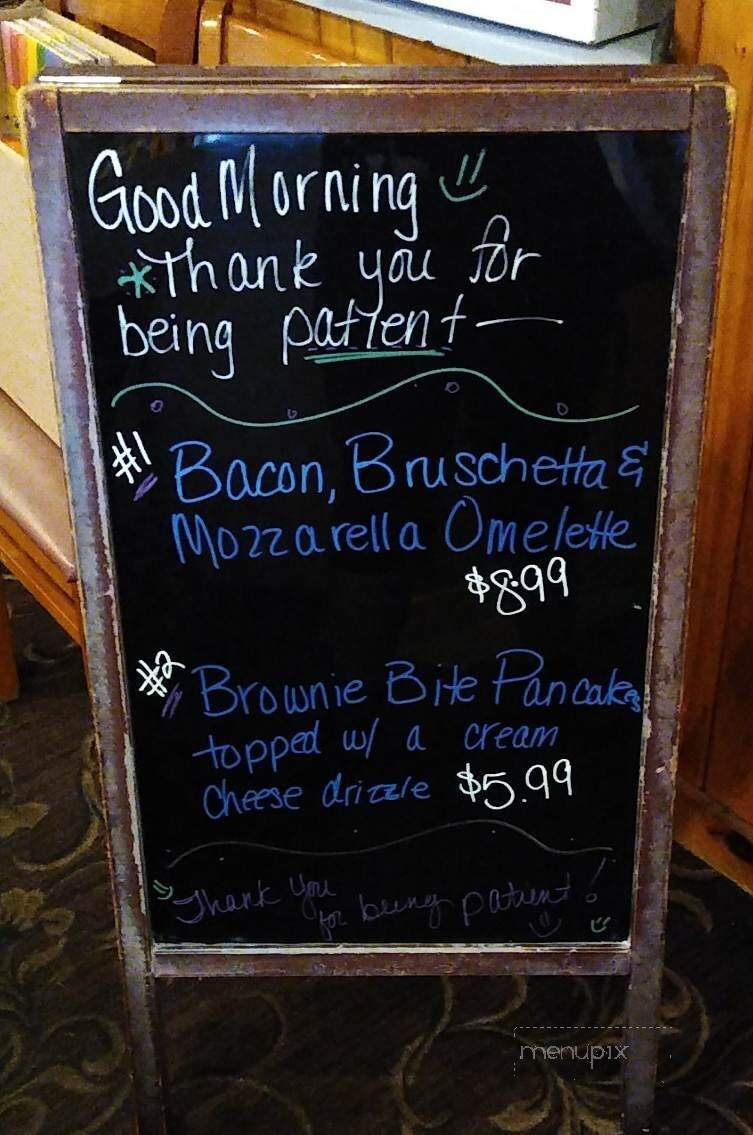 Good Morning
*Thank you for
being patient —
#1 Bacon, Bruschetta &
Mozzarella Omelette
$8.99
#2 Brownie Bite Pancakes
topped w/ a cream
cheese drizzle $5.99
Thank you
for being patient!
menupix